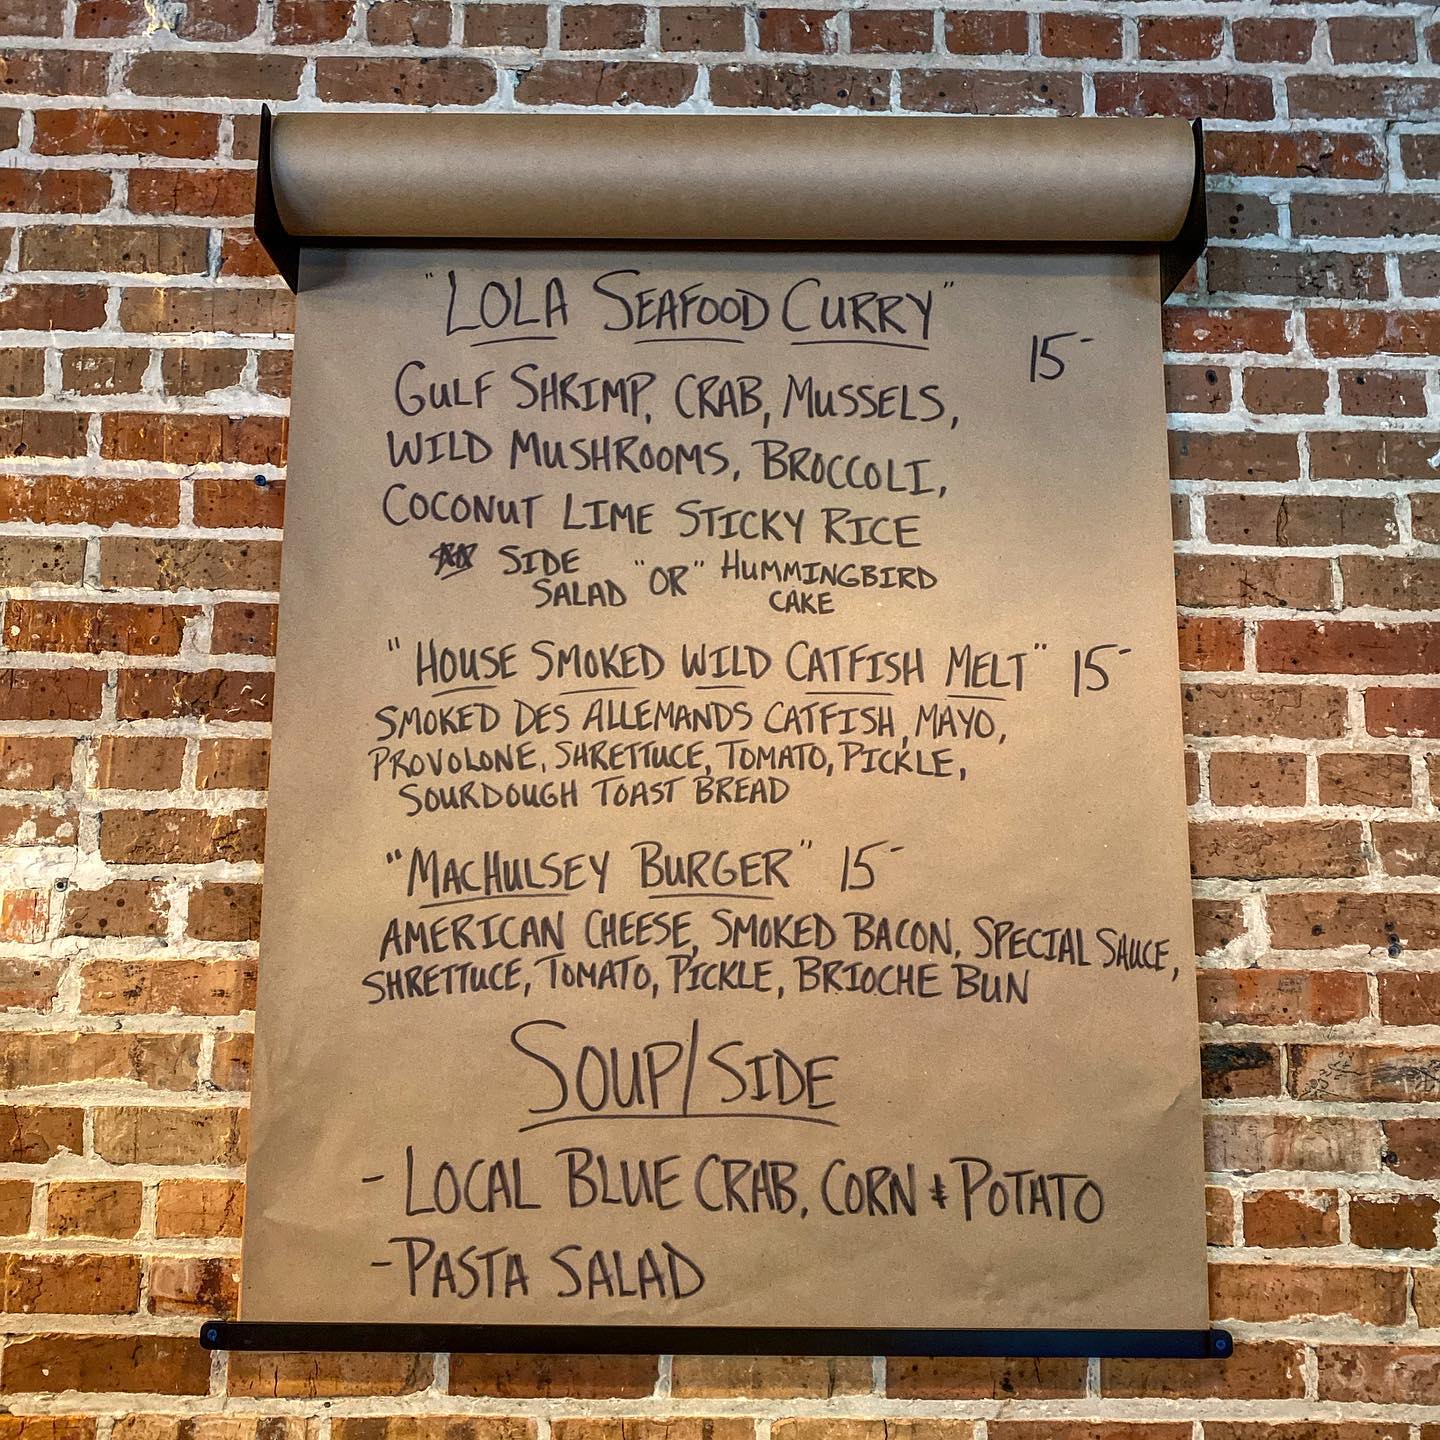 "LOLA SEAFOOD CURRY"
15-
GULF SHRIMP, CRAB, MUSSELS,
WILD MUSHROOMS, BROCCOLI,
COCONUT LIME STICKY RICE
SIDE SALAD "OR" HUMMINGBIRD CAKE
"HOUSE SMOKED WILD CATFISH MELT" 15-
SMOKED DES ALLEMANDS CATFISH, MAYO,
PROVOLONE, SHRETTUCE, TOMATO, PICKLE,
SOURDOUGH TOAST BREAD
"MACHULSEY BURGER" 15-
AMERICAN CHEESE, SMOKED BACON, SPECIAL SAUCE,
SHRETTUCE, TOMATO, PICKLE, BRIOCHE BUN
SOUP/SIDE
- LOCAL BLUE CRAB, CORN & POTATO
- PASTA SALAD